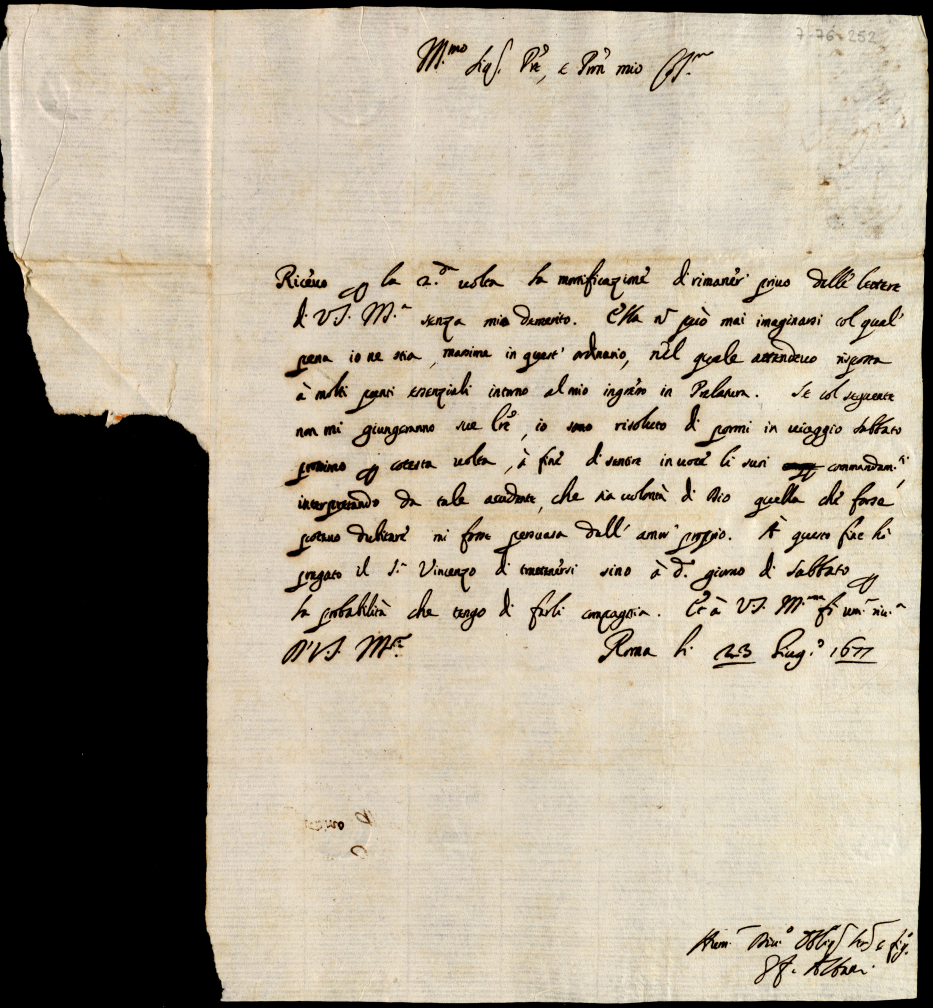 7-76-252
Ill.mo Sig.r P're, e P'ron mio
Riceuo per la 2.da uolta la mortificazione di rimaner' priuo delle lettere
di V.S. Ill.ma senza mio demerito. Ella no' può mai imaginarsi col qual'
pena io ne stia, massime in quest' ordinario, nel quale attendeuo risposta
à molti punti essenziali intorno al mio ingresso in Prelatura. Se col seguente
non mi giungeranno sue l're, io sono risoluto di pormi in uiaggio sabbato
prossimo per cotesta uolta, à fine di sentire in uoce li suoi commandam.ti
interpretando da tale accidente, che sia uolontà di Dio quella che forse
poteuo dubitare mi fosse persuasa dall' amor' proprio. A questo fine hò
pregato il S.r Vincenzo di trattenersi sino à d.o giorno di sabbato per
la probabilità che tengo di farli compagnia. Et à V.S. Ill.ma fò um.a riu.a
Di V.S. Ill.ma Roma li 23 Giug.o 1677
Hum.o Diu.o Oblig.o e fig.o
Gf. Albani